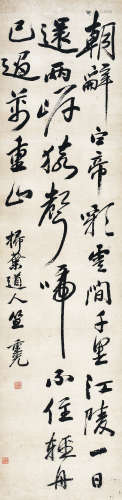 朝辭白帝彩雲間千里江陵一日
還兩岸猿聲啼不住輕舟
已過萬重山 掃葉道人笪重光